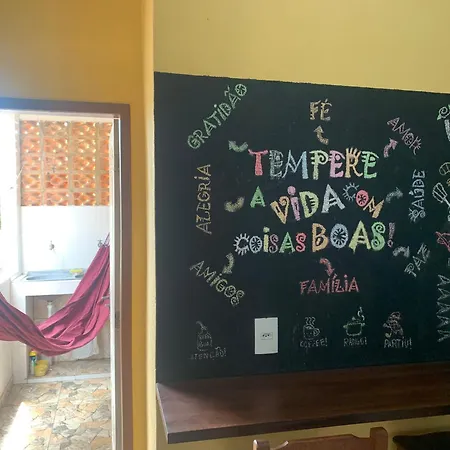 GRATIDÃO
FÉ
AMOR
ALEGRIA
TEMPERE
A VIDA COM
COISAS BOAS!
SAÚDE
PAZ
AMIGOS
FAMÍLIA
COFFEE!
RANGO!
PARTIU!